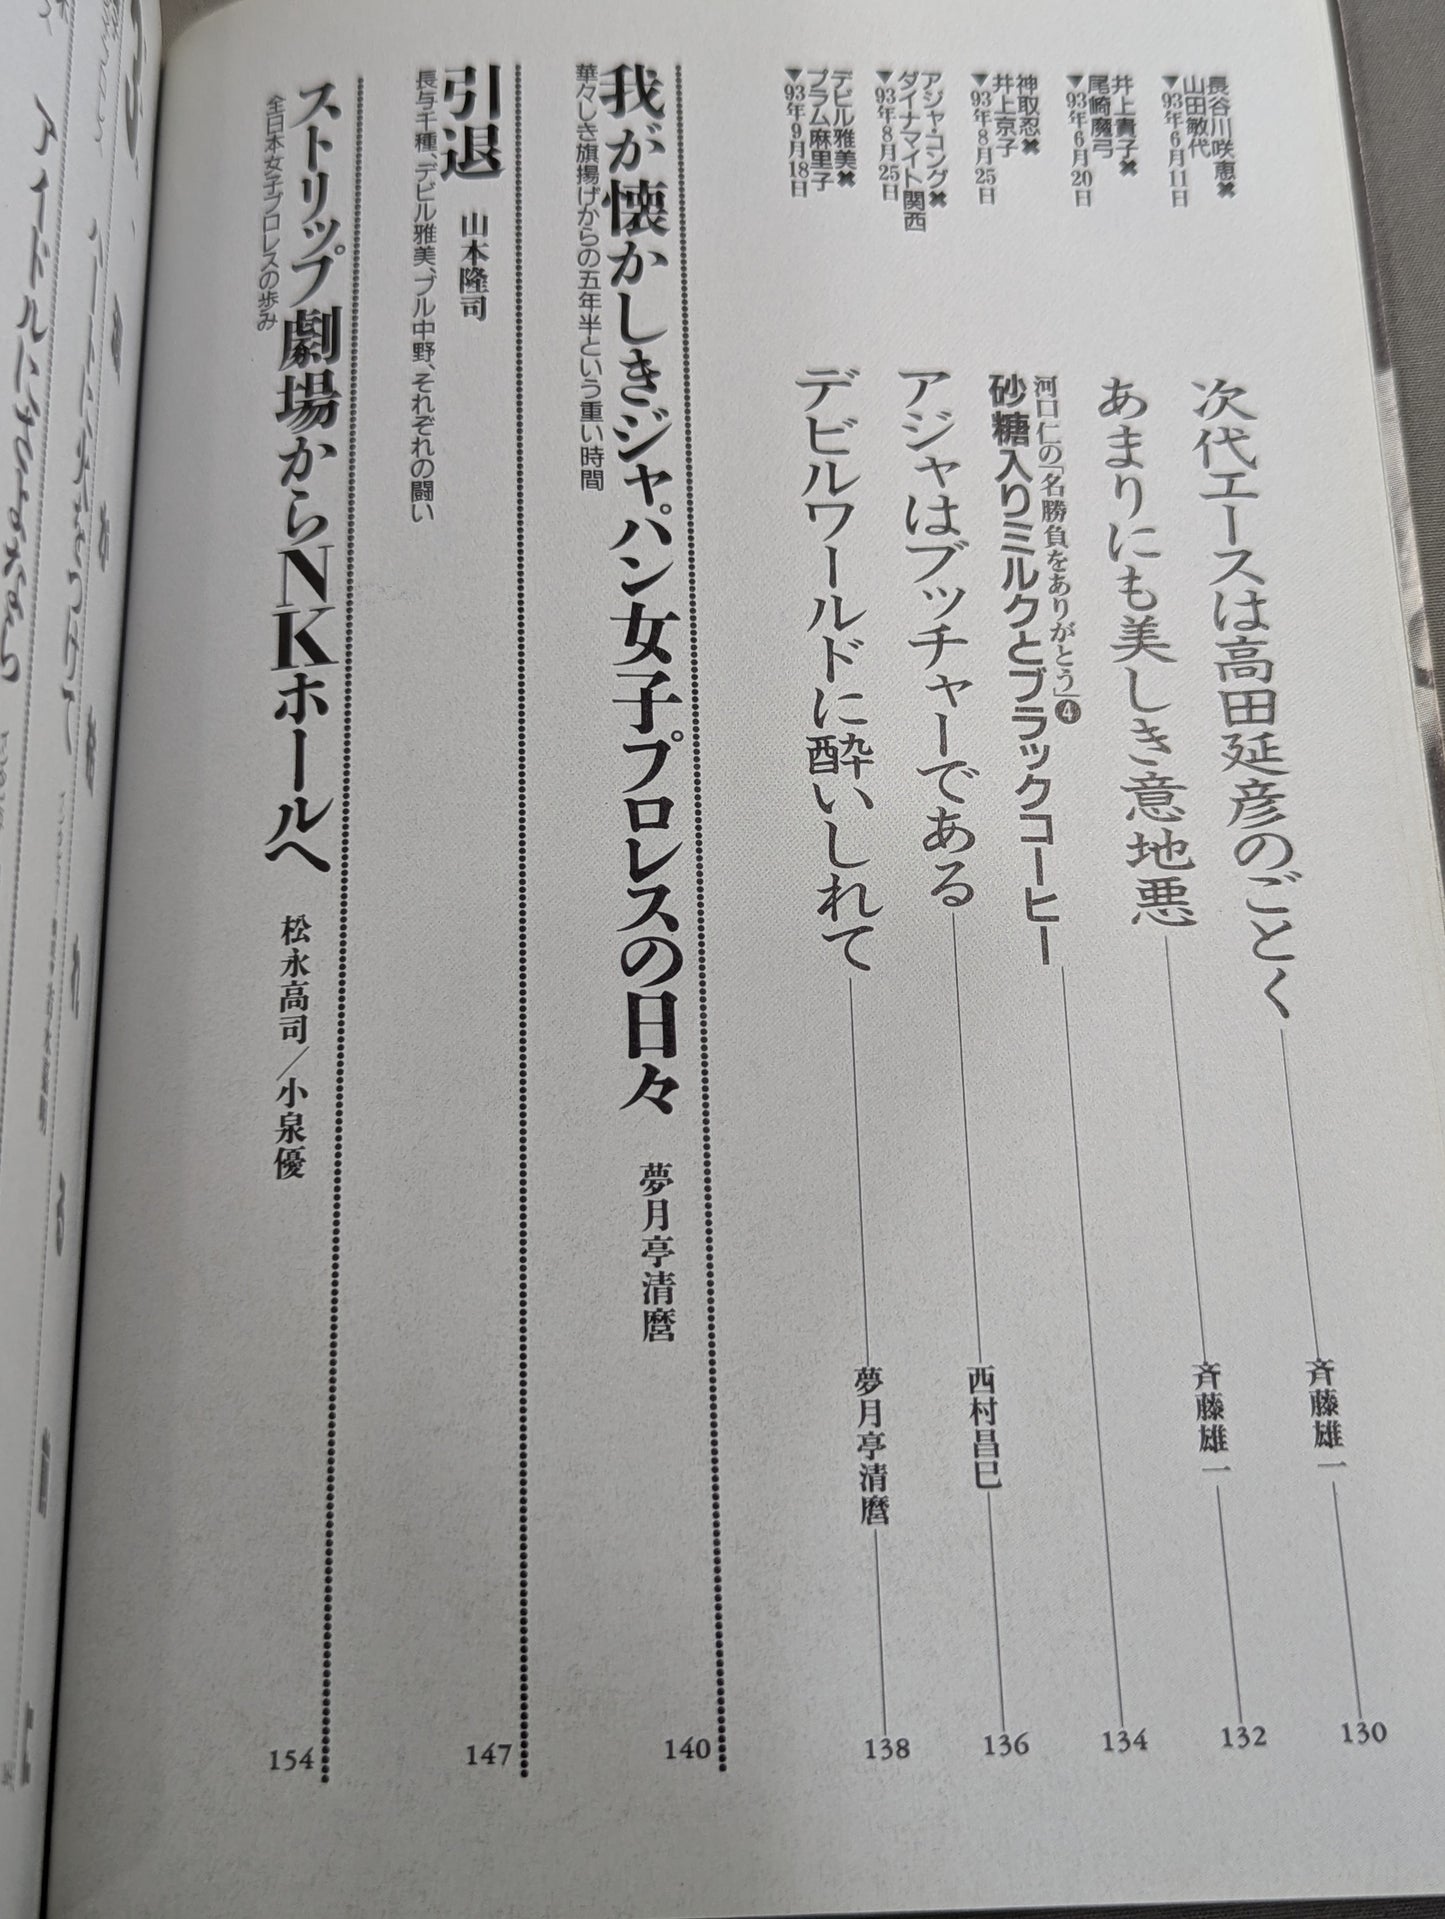 長谷川咲恵✖
山田敏代
▼93年6月11日
次代エースは高田延彦のごとく
斉藤雄一
130
井上貴子✖
尾崎魔弓
▼93年6月20日
あまりにも美しき意地悪
斉藤雄一
132
神取忍✖
井上京子
▼93年8月25日
河口仁の「名勝負をありがとう」❹
砂糖入りミルクとブラックコーヒー
134
アジャ・コング✖
ダイナマイト関西
▼93年8月25日
アジャはブッチャーである
西村昌巳
136
デビル雅美✖
プラム麻里子
▼93年9月18日
デビルワールドに酔いしれて
夢月亭清麿
138
我が懐かしきジャパン女子プロレスの日々 夢月亭清麿
華々しき旗揚げからの五年半という重い時間
140
引退 山本隆司
長与千種、デビル雅美、ブル中野、それぞれの闘い
147
ストリップ劇場からNKホールへ 松永高司/小泉優
全日本女子プロレスの歩み
154